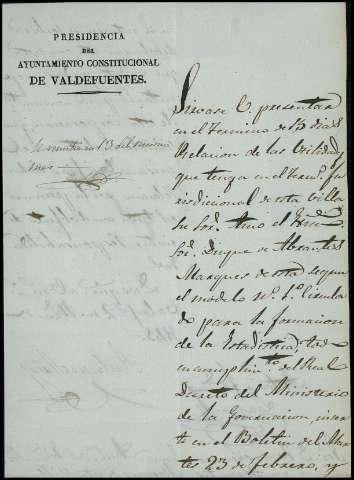 PRESIDENCIA
DEL
AYUNTAMIENTO CONSTITUCIONAL
DE VALDEFUENTES.
13 del mismo
mes
Sirvase V. presentar
en el termino de 15 dias
Relacion de las Utilidad.s
que tenga en el term.o ju
risdicional de esta villa
su Sor. Amo el Exmo
Sor. Duque de Abrantes
Marques de esta segun
el modelo n.o 1.o circula
do para la formacion
de la Estadistica, todo
en cumplim.to del Real
Decreto del Ministerio
de la Governacion, inser
to en el Boletin del Mar
tes 23 de febrero, y